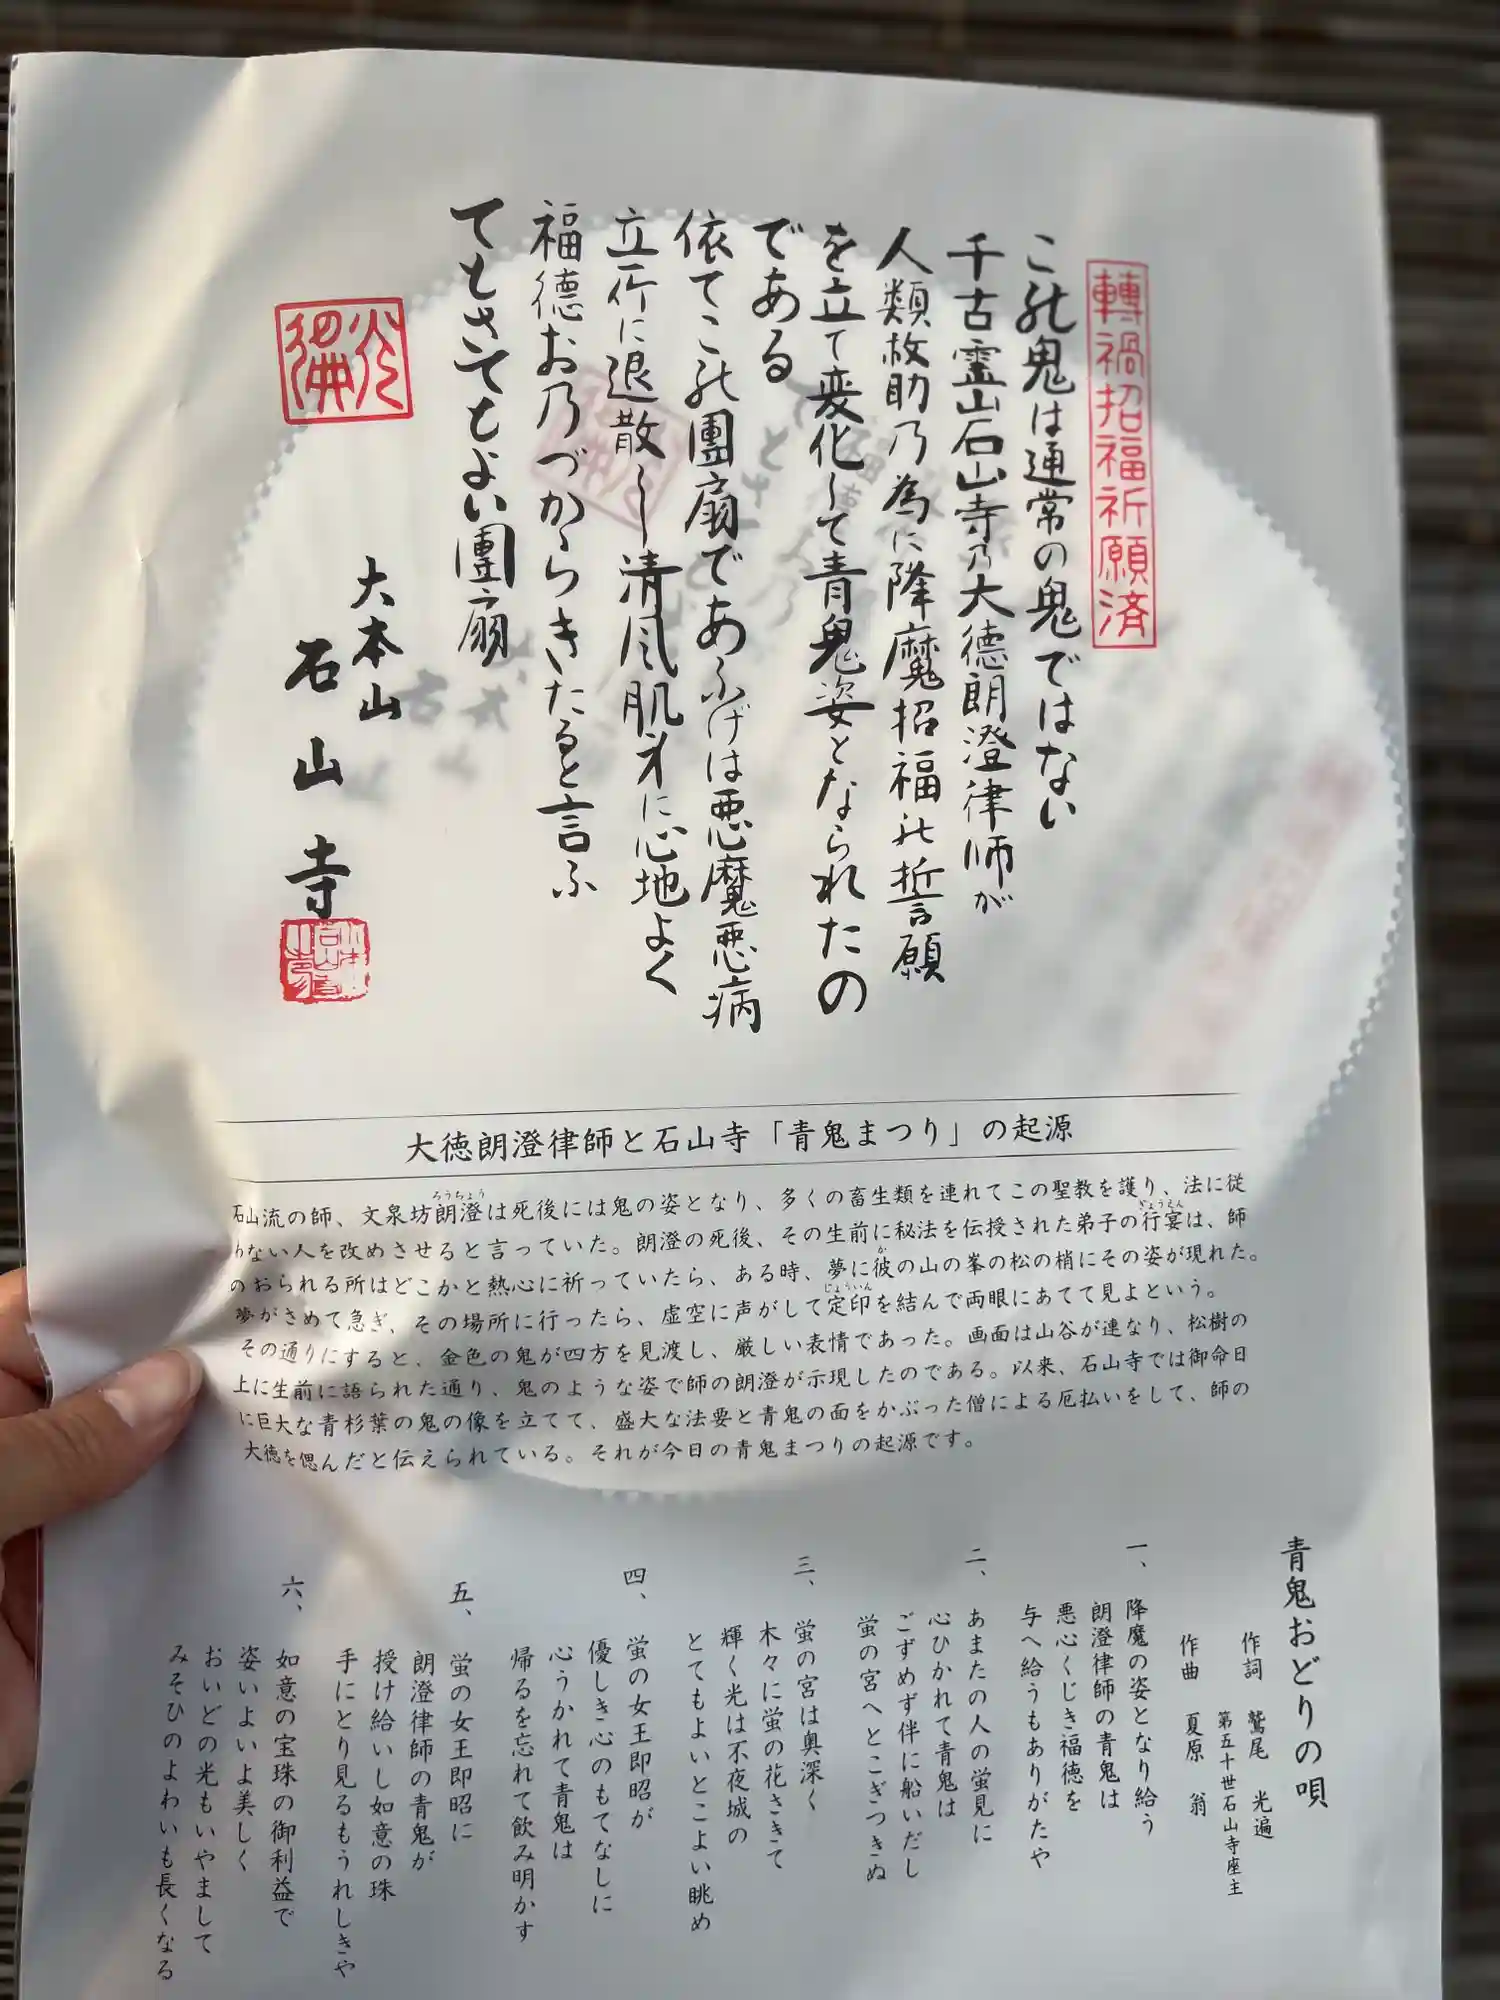 轉禍招福祈願済
この鬼は通常の鬼ではない
千古霊山石山寺乃大德朗澄律師が
人類救助乃為に降魔招福の誓願
を立て変化して青鬼姿となられたの
である
依てこの團扇であふげは悪魔悪病
立所に退散し清風肌身に心地よく
福德おのづからきたると言ふ
てもさてもよい團扇
大本山
石山寺
大徳朗澄律師と石山寺「青鬼まつり」の起源
石山流の師、文泉坊朗澄は死後には鬼の姿となり、多くの畜生類を連れてこの聖教を護り、法に従
ろうちょう
わない人を改めさせると言っていた。朗澄の死後、その生前に秘法を伝授された弟子の行宴は、師
ぎょうえん
のおられる所はどこかと熱心に祈っていたら、ある時、夢に彼の山の峯の松の梢にその姿が現れた。
か
夢がさめて急ぎ、その場所に行ったら、虚空に声がして定印を結んで両眼にあてて見よという。
じょういん
その通りにすると、金色の鬼が四方を見渡し、厳しい表情であった。画面は山谷が連なり、松樹の
上に生前に語られた通り、鬼のような姿で師の朗澄が示現したのである。以来、石山寺では御命日
に巨大な青杉葉の鬼の像を立てて、盛大な法要と青鬼の面をかぶった僧による厄払いをして、師の
大徳を偲んだと伝えられている。それが今日の青鬼まつりの起源です。
青鬼おどりの唄
作詞 鷲尾 光遍
第五十世石山寺座主
作曲 夏原 翁
一、降魔の姿となり給う
朗澄律師の青鬼は
悪心くじき福徳を
与へ給うもありがたや
二、あまたの人の蛍見に
心ひかれて青鬼は
ごずめず伴に船いだし
蛍の宮へとこぎつきぬ
三、蛍の宮は奥深く
木々に蛍の花さきて
輝く光は不夜城の
とてもよいとこよい眺め
四、蛍の女王即昭が
優しき心のもてなしに
心うかれて青鬼は
帰るを忘れて飲み明かす
五、蛍の女王即昭に
朗澄律師の青鬼が
授け給いし如意の珠
手にとり見るもうれしきや
六、如意の宝珠の御利益で
姿いよいよ美しく
おいどの光もいやまして
みそひのよわいも長くなる